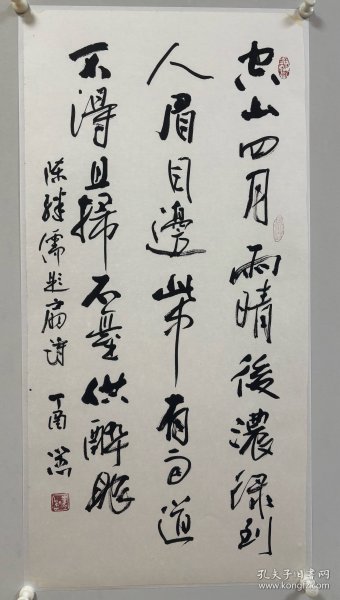 空山四月雨晴後濃綠到
人眉目邊柴有而道
不得且掃石臺供醉眠
陳繼儒題扇詩 丁酉
孔夫子旧书网
www.kongfz.com